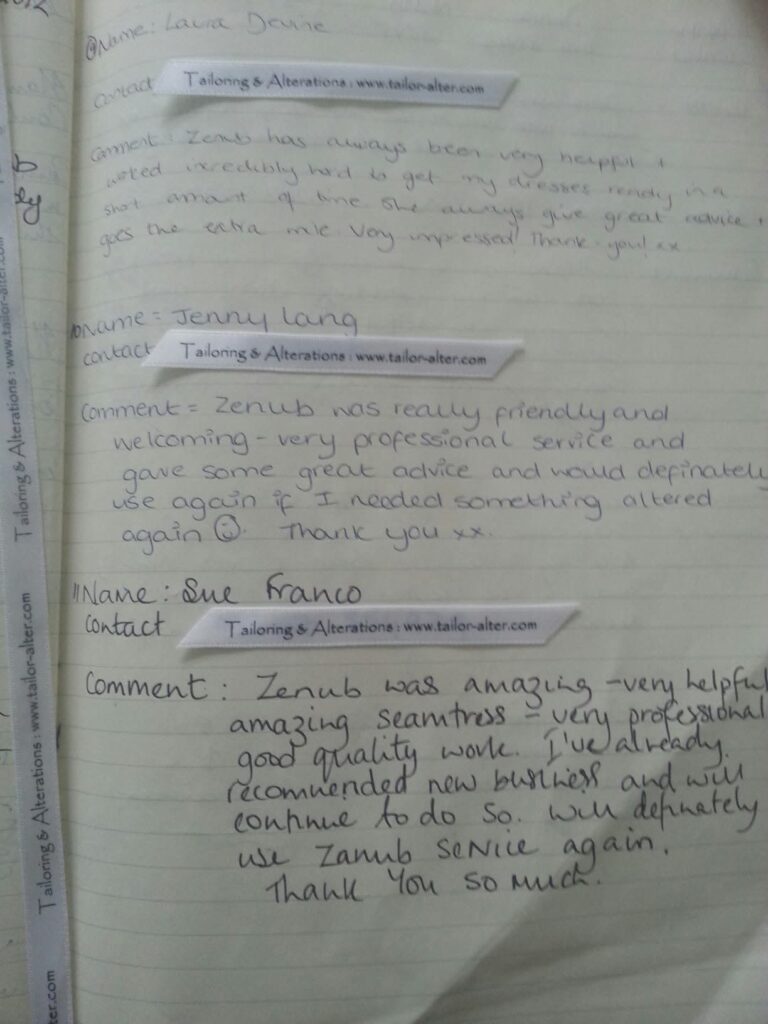 Name: Laura Devine
Contact
Tailoring & Alterations : www.tailor-alter.com
Comment: Zenub has always been very helpful +
worked incredibly hard to get my dresses ready in a
short amount of time. She always give great advice +
goes the extra mile. Very impressed! Thank you! xx
10 Name = Jenny Lang
contact
Tailoring & Alterations : www.tailor-alter.com
Comment = Zenub was really friendly and
welcoming - very professional service and
gave some great advice and would definately
use again if I needed something altered
again ☺. Thank you xx.
11 Name : Sue Franco
Contact
Tailoring & Alterations : www.tailor-alter.com
Comment : Zenub was amazing - very helpful
amazing seamtress - very professional
good quality work. I've already
recommended new business and will
continue to do so. Will definately
use Zanub service again.
Thank You so much.
Tailoring & Alterations : www.tailor-alter.com
Tailoring & Alterations : www.tailor-alter.com
ter.com